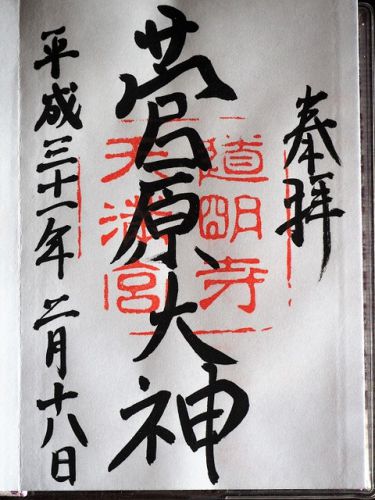 奉拝
道明寺
天満宮
菅原大神
平成三十一年二月十八日